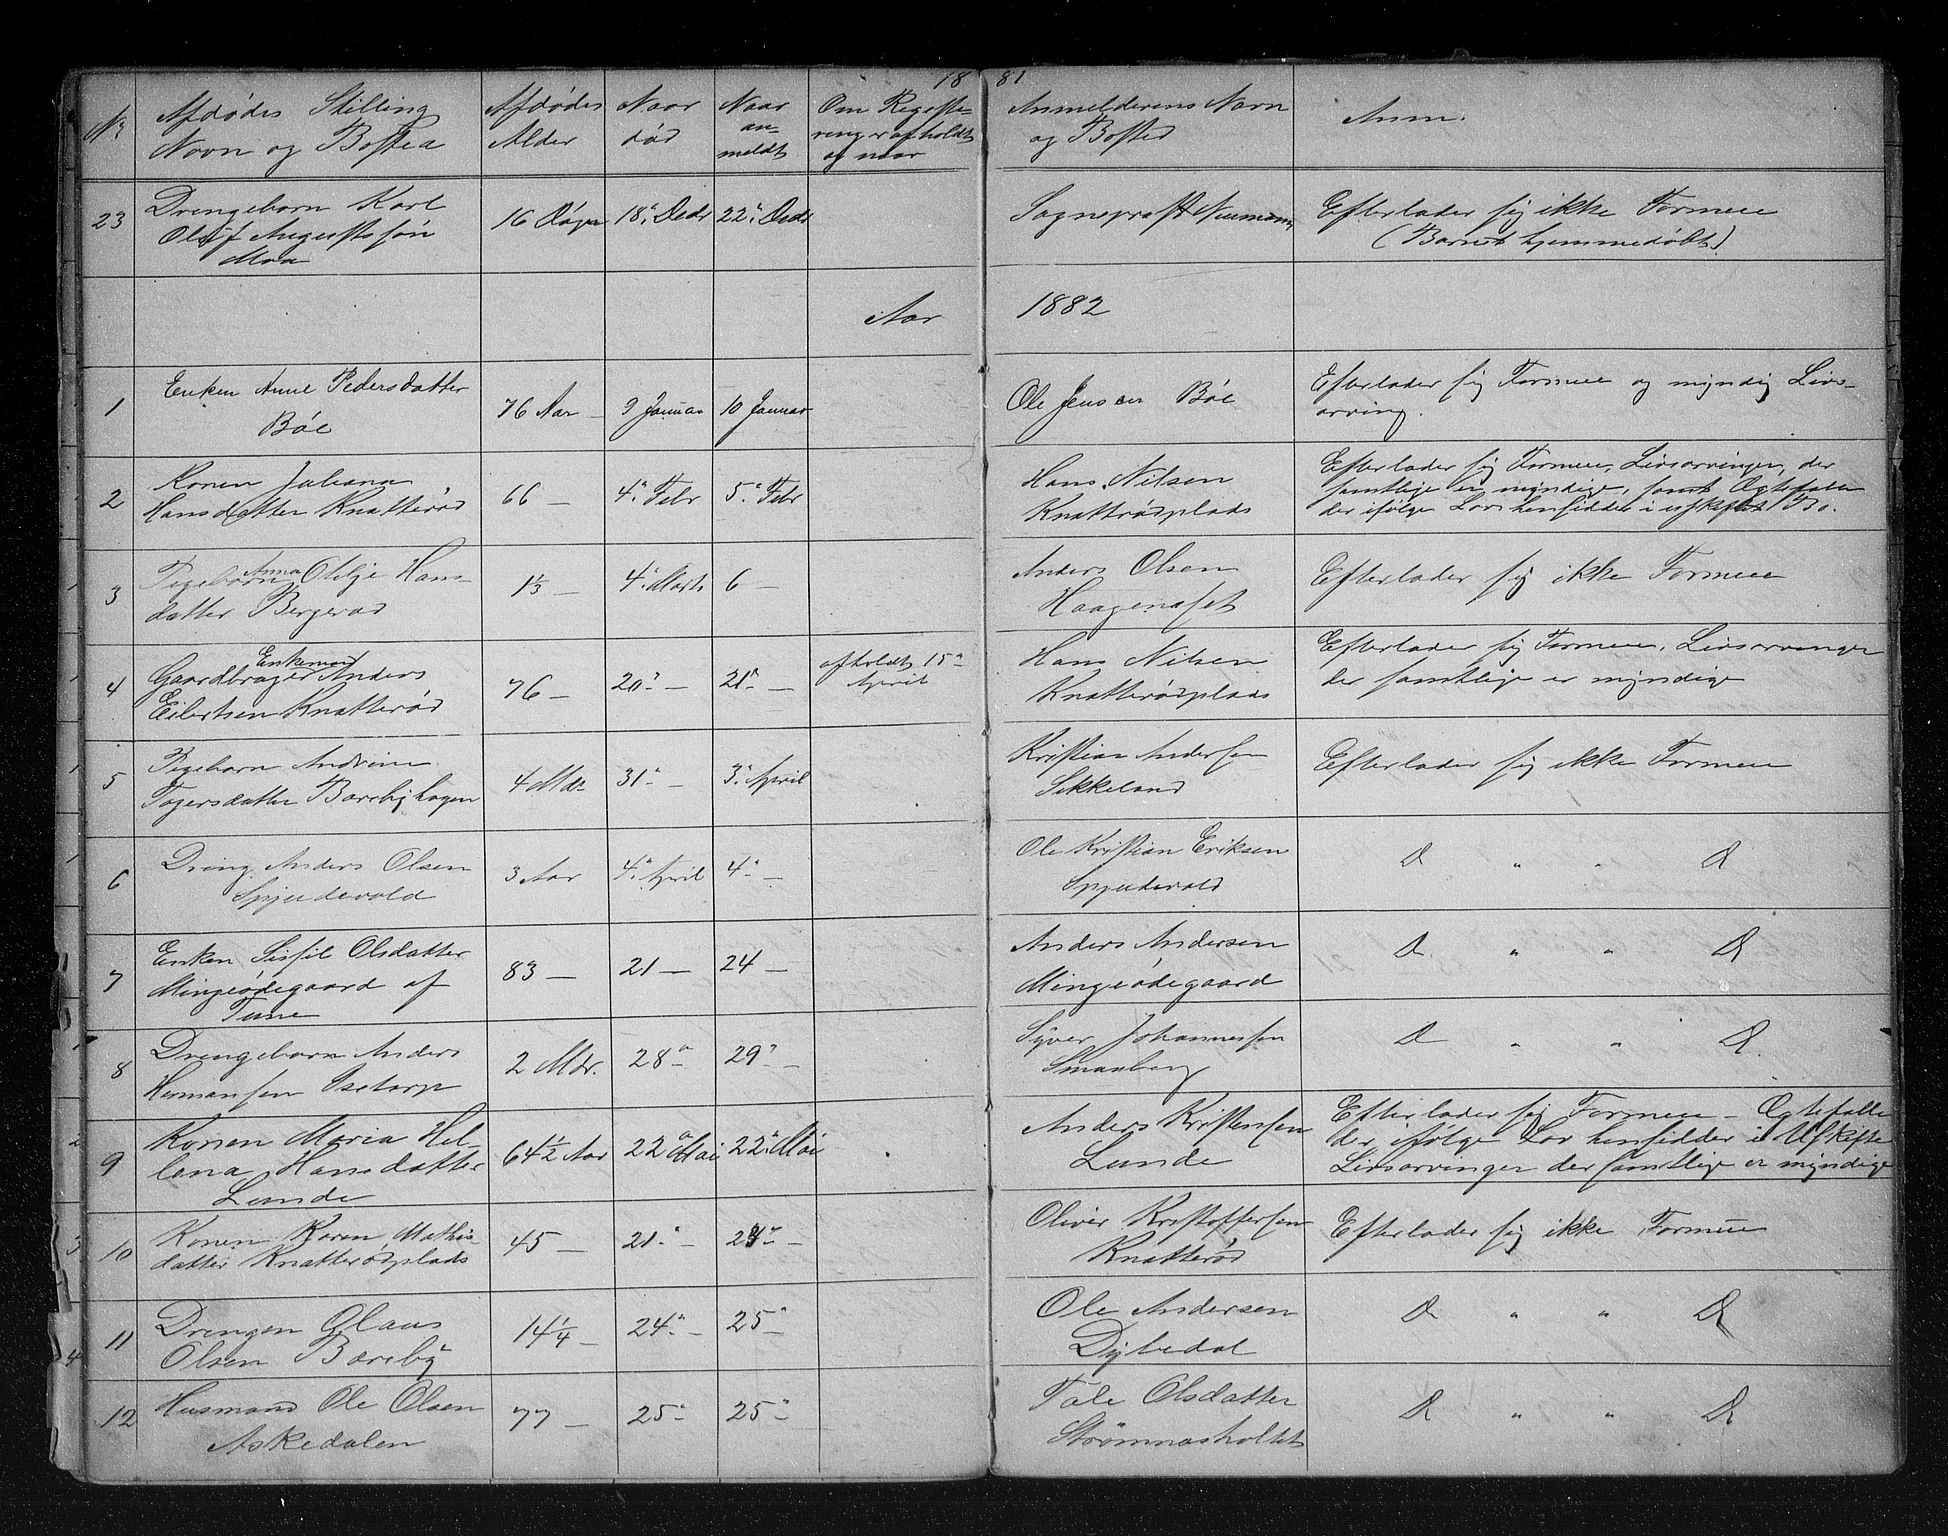 18 81
No
Afdødes Stilling
Navn og Bosted
Afdødes
Alder
Naar
død
Naar
an-
meldt
Om Registe-
ring er afholdt
og naar
Anmelderens Navn
og Bosted
Anm.
23
Drengebarn Karl
Oluf Augustsøn
Moa
16 Døgn
18de Decbr
22de Decbr
Sogneprest Neumann
Efterlader sig ikke Formue
(Barnet hjemmedøbt)
Aar 1882
1
Enken Anne Pedersdatter
Böe
76 Aar
9 Januar
10 Januar
Ole Jensen Böe
Efterlader sig Formue og myndig Livs-
arving.
2
Konen Johana
Hansdatter Knatterød
66 —
4de Febr
5te Febr
Hans Nilsen
Knatterødplads
Efterlader sig Formue, Livsarvinger, der
samtlige er myndige, samt Ægtefælle
der ifølge Lov hensidder i uskiftet Bo.
3
Pigebarn Anna Otilje Hans-
datter Bergerød
1⅓ —
4de Marts
6 —
Anders Olsen
Haagenaset
Efterlader sig ikke Formue
4
Enkemand
Gaardbruger Anders
Eilertsen Knatterød
76 —
20de —
21de —
afholdt 15de
April
Hans Nilsen
Knatterødplads
Efterlader sig Formue, Livsarvinger
der samtlige er myndige
5
Pigebarn Andrine
Torgersdatter Borebyhagen
4 Mdr
31te —
3de April
Kristian Andersen
Sikkeland
Efterlader sig ikke Formue
6
Dreng Anders Olsen
Spydevold
3 Aar
4de April
4de —
Ole Kristian Eriksen
Spydevold
D " " D
7
Enken Sissil Olsdatter
Mingeødegaard af
Tune
83 —
21 —
24 —
Anders Andersen
Mingeødegaard
D " " D
8
Drengebarn Anders
Hermansen Isetorp
2 Mdr.
28de —
29de —
Syver Johannessen
Smaaberg
D " " D.
9
Konen Maria Hel-
lena Hansdatter
Lunde
64½ Aar
22de Mai
22de Mai
Anders Kristensen
Lunde
Efterlader sig Formue — Ægtefælle
der ifølge Lov hensidder i Uskifte
Livsarvinger der samtlige er myndige
10
Konen Karen Mathis-
datter Knatterødplads
45 —
21de —
24de —
Oliver Kristoffersen
Knatterød
Efterlader sig ikke Formue
11
Drengen Olaus
Olsen Boreby
14¼ —
24de —
25de —
Ole Andersen
Dybedal
D " " D
12
Husmand Ole Olsen
Askedalen
77 —
25de —
25de —
Tale Olsdatter
Strømnasholtet
D " " D